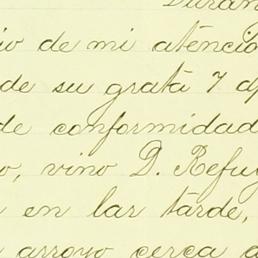 Duran
io de mi atenció
de su grata 7 dp
de conformidad
o, vino D. Refu
en lar tarde,
arroyo cerca d